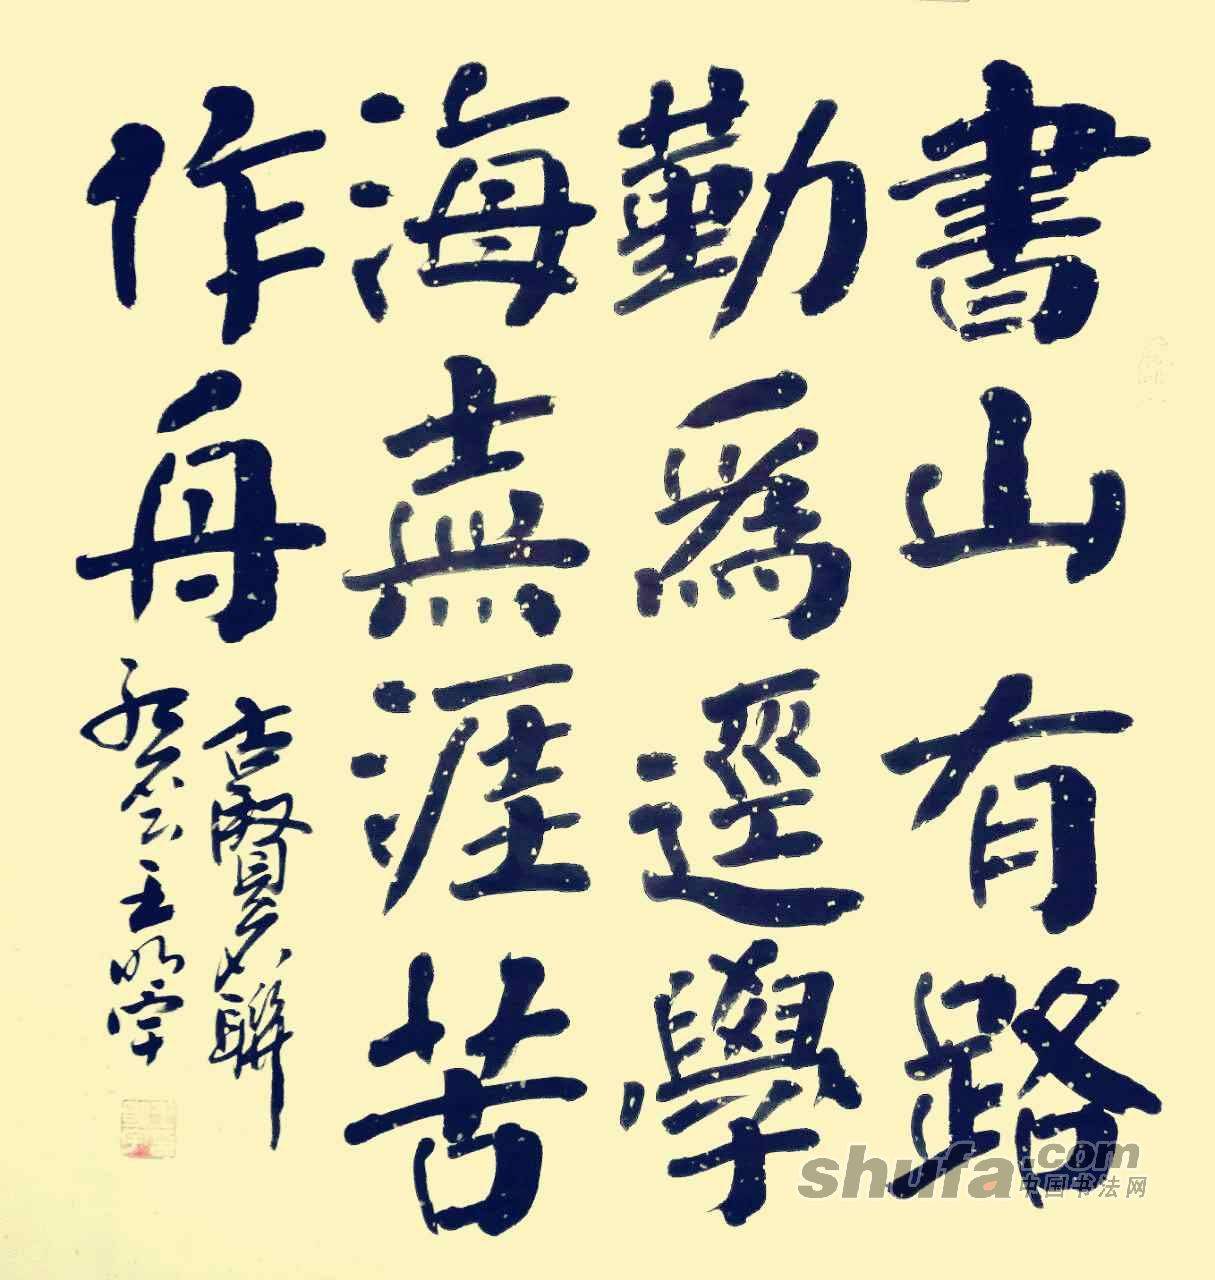 書山有路
勤為逕學
海無涯苦
作舟
古賢聯
shufa.com
中国书法网